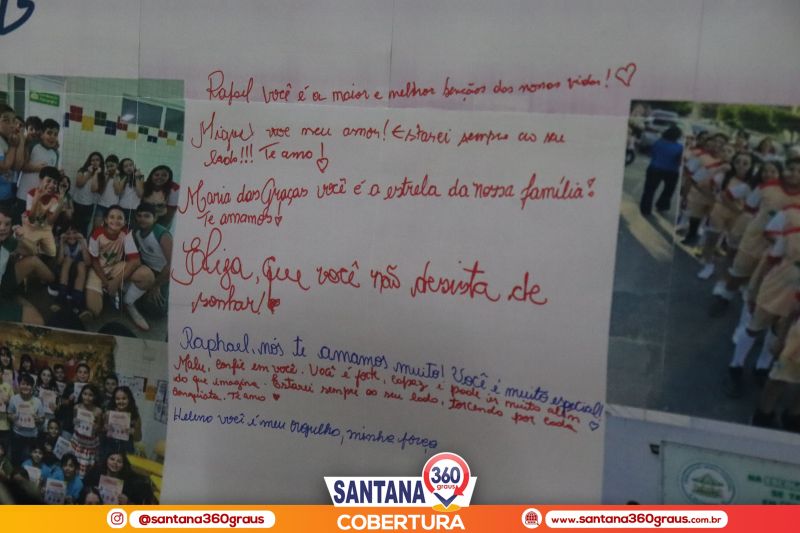 Rafael você é a maior e melhor bençãos das nossas vidas!
Miguel você meu amor! Estarei sempre ao seu
lado!!! Te amo!
Maria das Graças você é a estrela da nossa família!
Te amamos
Eliza, que você não desista de
sonhar!
Raphael, nós te amamos muito! Você é muito especial!
Malu, confie em você. Você é forte, capaz e pode ir muito além
do que imagina. Estarei sempre ao seu lado, torcendo por cada
conquista. Te amo
Heleno você é meu orgulho, minha força
SANTANA 360 graus
COBERTURA
@santana360graus
www.santana360graus.com.br